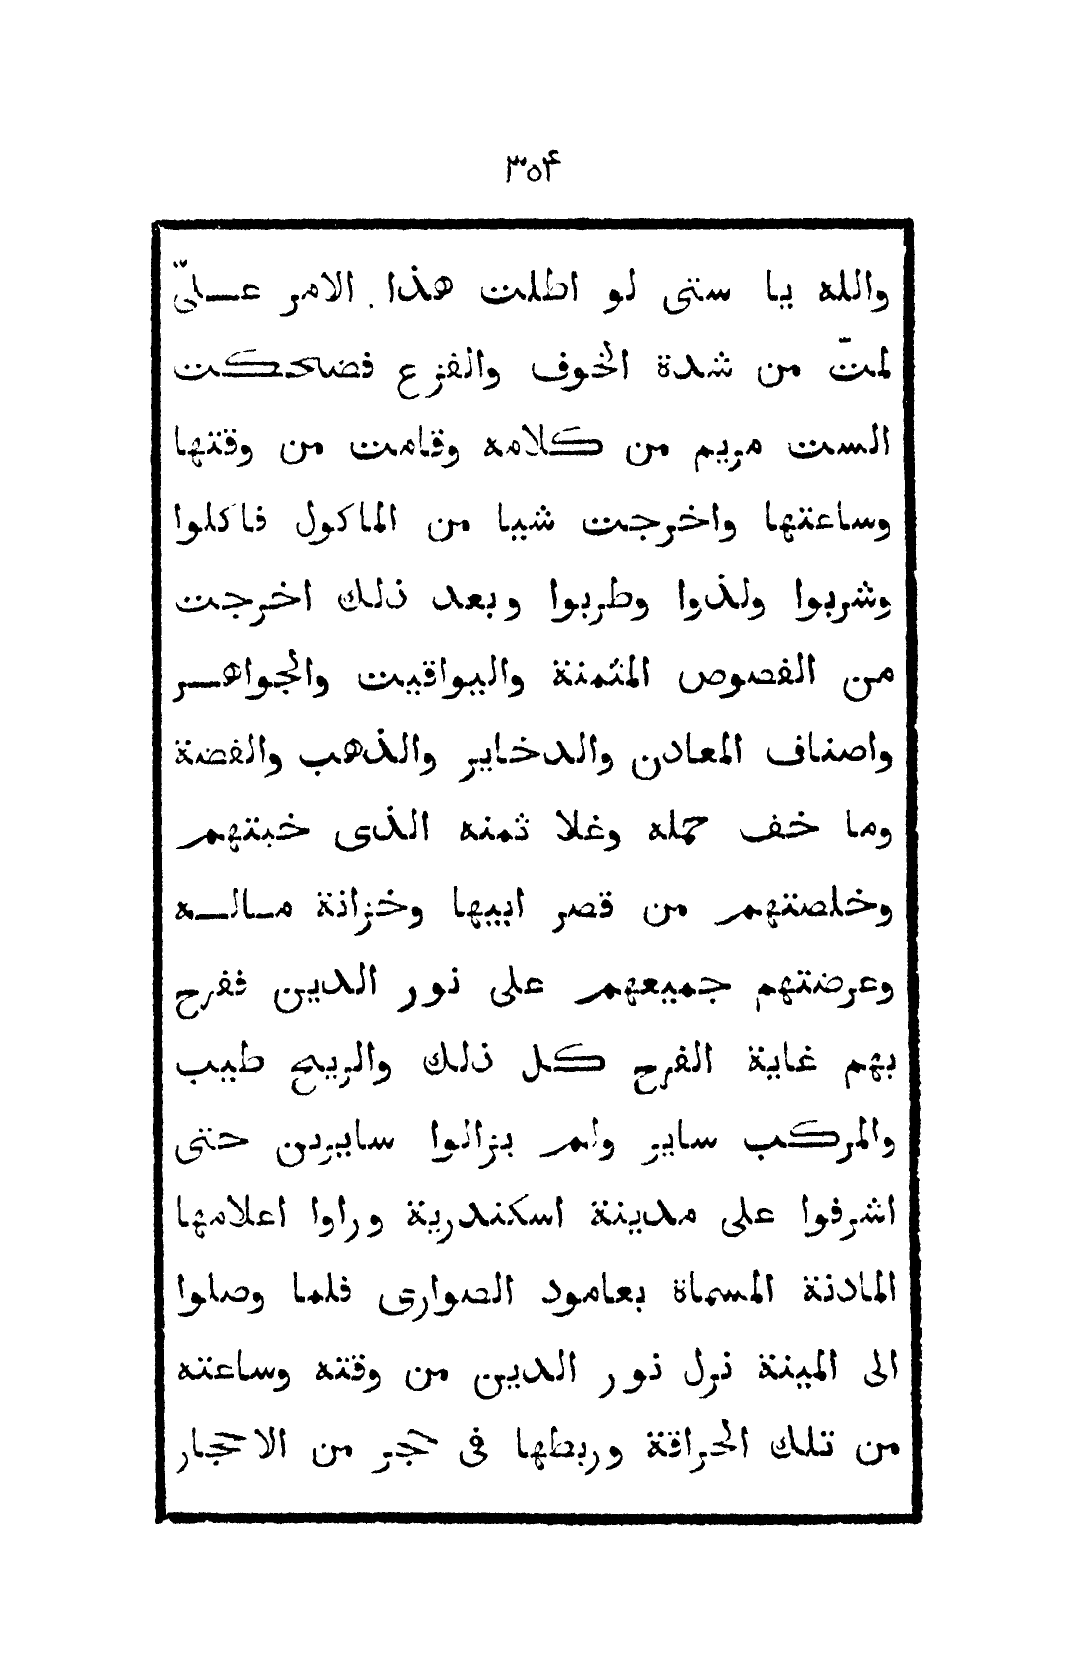 ٣٥۴
والله يا ستى لو اطلت هذا الامر عـلىّ
لمتّ من شدة الخوف والفزع فضحكت
الست مريم من كلامه وقامت من وقتها
وساعتها واخرجت شيا من الماكول فاكلوا
وشربوا ولذوا وطربوا وبعد ذلك اخرجت
من الفصوص المثمنة واليواقيت والجواهـر
واصناف المعادن والدخاير والذهب والفضة
وما خف حمله وغلا ثمنه الذى خبتهم
وخلصتهم من قصر ابيها وخزانة مـالـه
وعرضتهم جميعهم على نور الدين ففرح
بهم غاية الفرح كل ذلك والريح طيب
والمركب ساير ولم يزالوا سايرين حتى
اشرفوا على مدينة اسكندرية وراوا اعلامها
المادنة المسماة بعامود الصوارى فلما وصلوا
الى المينة نزل نور الدين من وقته وساعته
من تلك الحراقة وربطها فى حجر من الاحجار